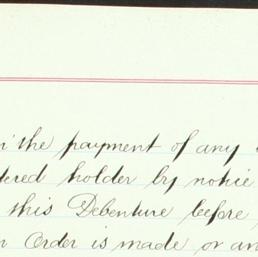 in the payment of any
tered holder by notice
this Debenture before
Order is made or an